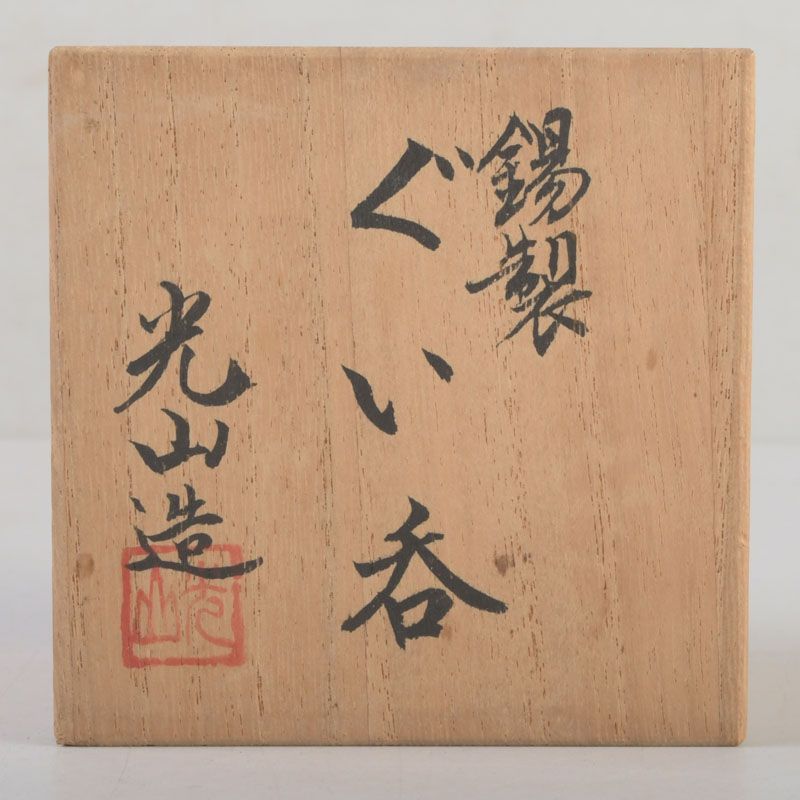 錫製
ぐい呑
光山造
光山